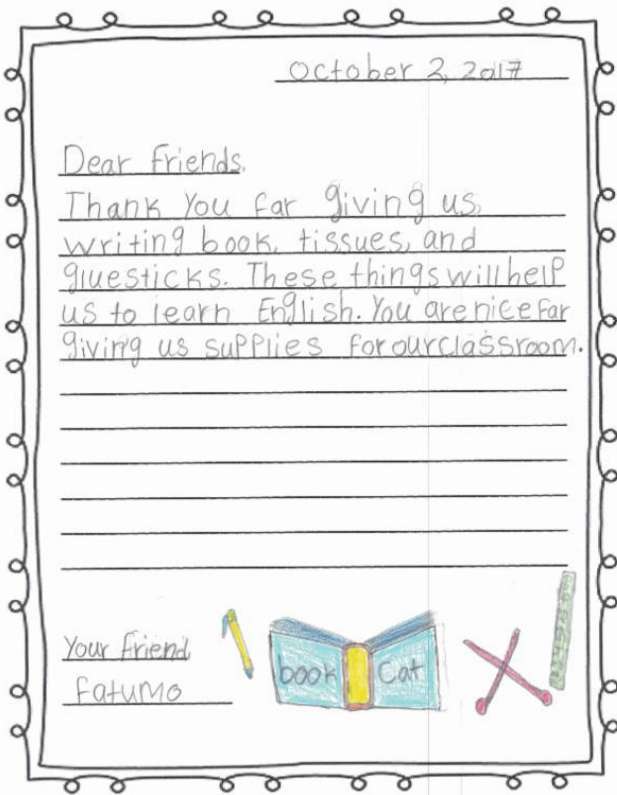 October 2, 2017
Dear Friends,
Thank You far giving us,
writing book, tissues, and
gluesticks. These things will help
us to learn English. You are nice far
giving us supplies for our classroom.
Your Friend,
Fatumo
book Cat